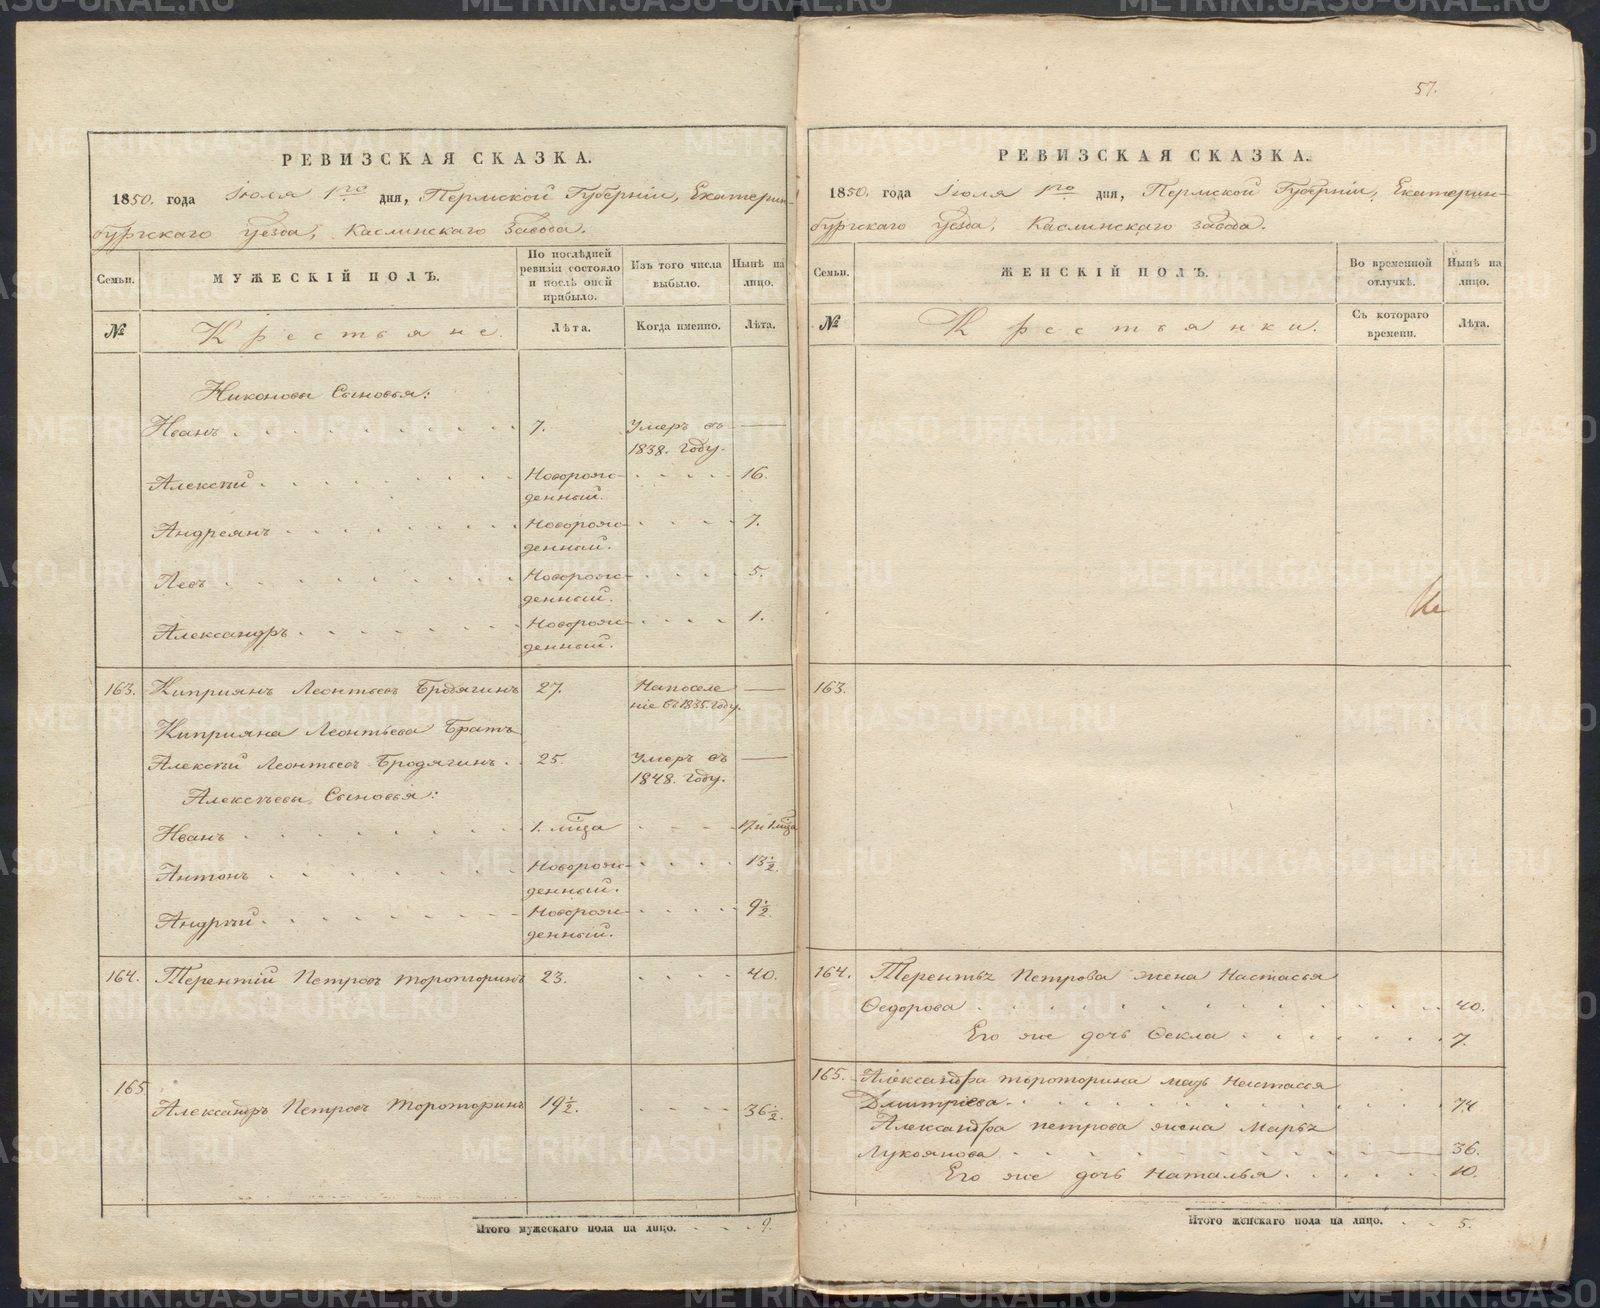 РЕВИЗСКАЯ СКАЗКА.
1850. года Июля 1го дня, Пермской Губернiи, Екатерин-
бургскаго уезда, Каслинскаго завода.
Семьи.
МУЖЕСКIЙ ПОЛЪ.
По послѣдней ревизiи состояло и послѣ оной прибыло.
Изъ того числа выбыло.
Нынѣ на лицо.
№
Крестьяне.
Лѣта.
Когда именно.
Лѣта.
Никоновы Сыновья:
Иванъ 7. Умеръ въ —
1838. году.
Алексѣй Новорож- 16.
денный.
Андреянъ Новорож- 7.
денный.
Левъ Новорож- 5.
денный.
Александръ Новорож- 1.
денный.
163. Киприянъ Леонтьевъ Бродягинъ 27. Напоселе —
нiе въ 1835. году.
Киприяна Леонтьева Братъ
Алексѣй Леонтьевъ Бродягинъ. 25. Умеръ въ —
1848. году.
Алексѣевы Сыновья:
Иванъ 1. мца 17 и 1 мца
Антонъ Новорож- 13½.
денный.
Андрѣй Новорож- 9½.
денный.
164. Терентiй Петровъ Тороторинъ 23. 40.
165 Александръ Петровъ Тороторинъ 19½. 36½.
Итого мужескаго пола на лицо. 9.
57.
РЕВИЗСКАЯ СКАЗКА.
1850. года Июля 1го дня, Пермской Губернiи, Екатерин-
бургскаго уезда, Каслинскаго завода.
Семьи.
ЖЕНСКIЙ ПОЛЪ.
Во временной отлучкѣ.
Нынѣ на лицо.
№
Крестьянки.
Съ котораго времени.
Лѣта.
163.
164. Терентья Петрова жена Настасья
Ѳедорова 40.
Его же дочь Ѳекла 7.
165. Александра Тороторина мать Настасья
Дмитрiева 74
Александра петрова жена Марья
Лукоянова 36.
Его же дочь Наталья 10.
Итого женскаго пола на лицо. 5.
METRIKI.GASO-URAL.RU